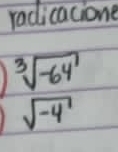 radicacione
) ∛-64
) √-4